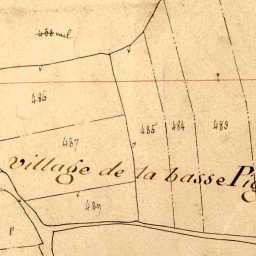 486
487
485 484 483
village de la basse Pig
489
P